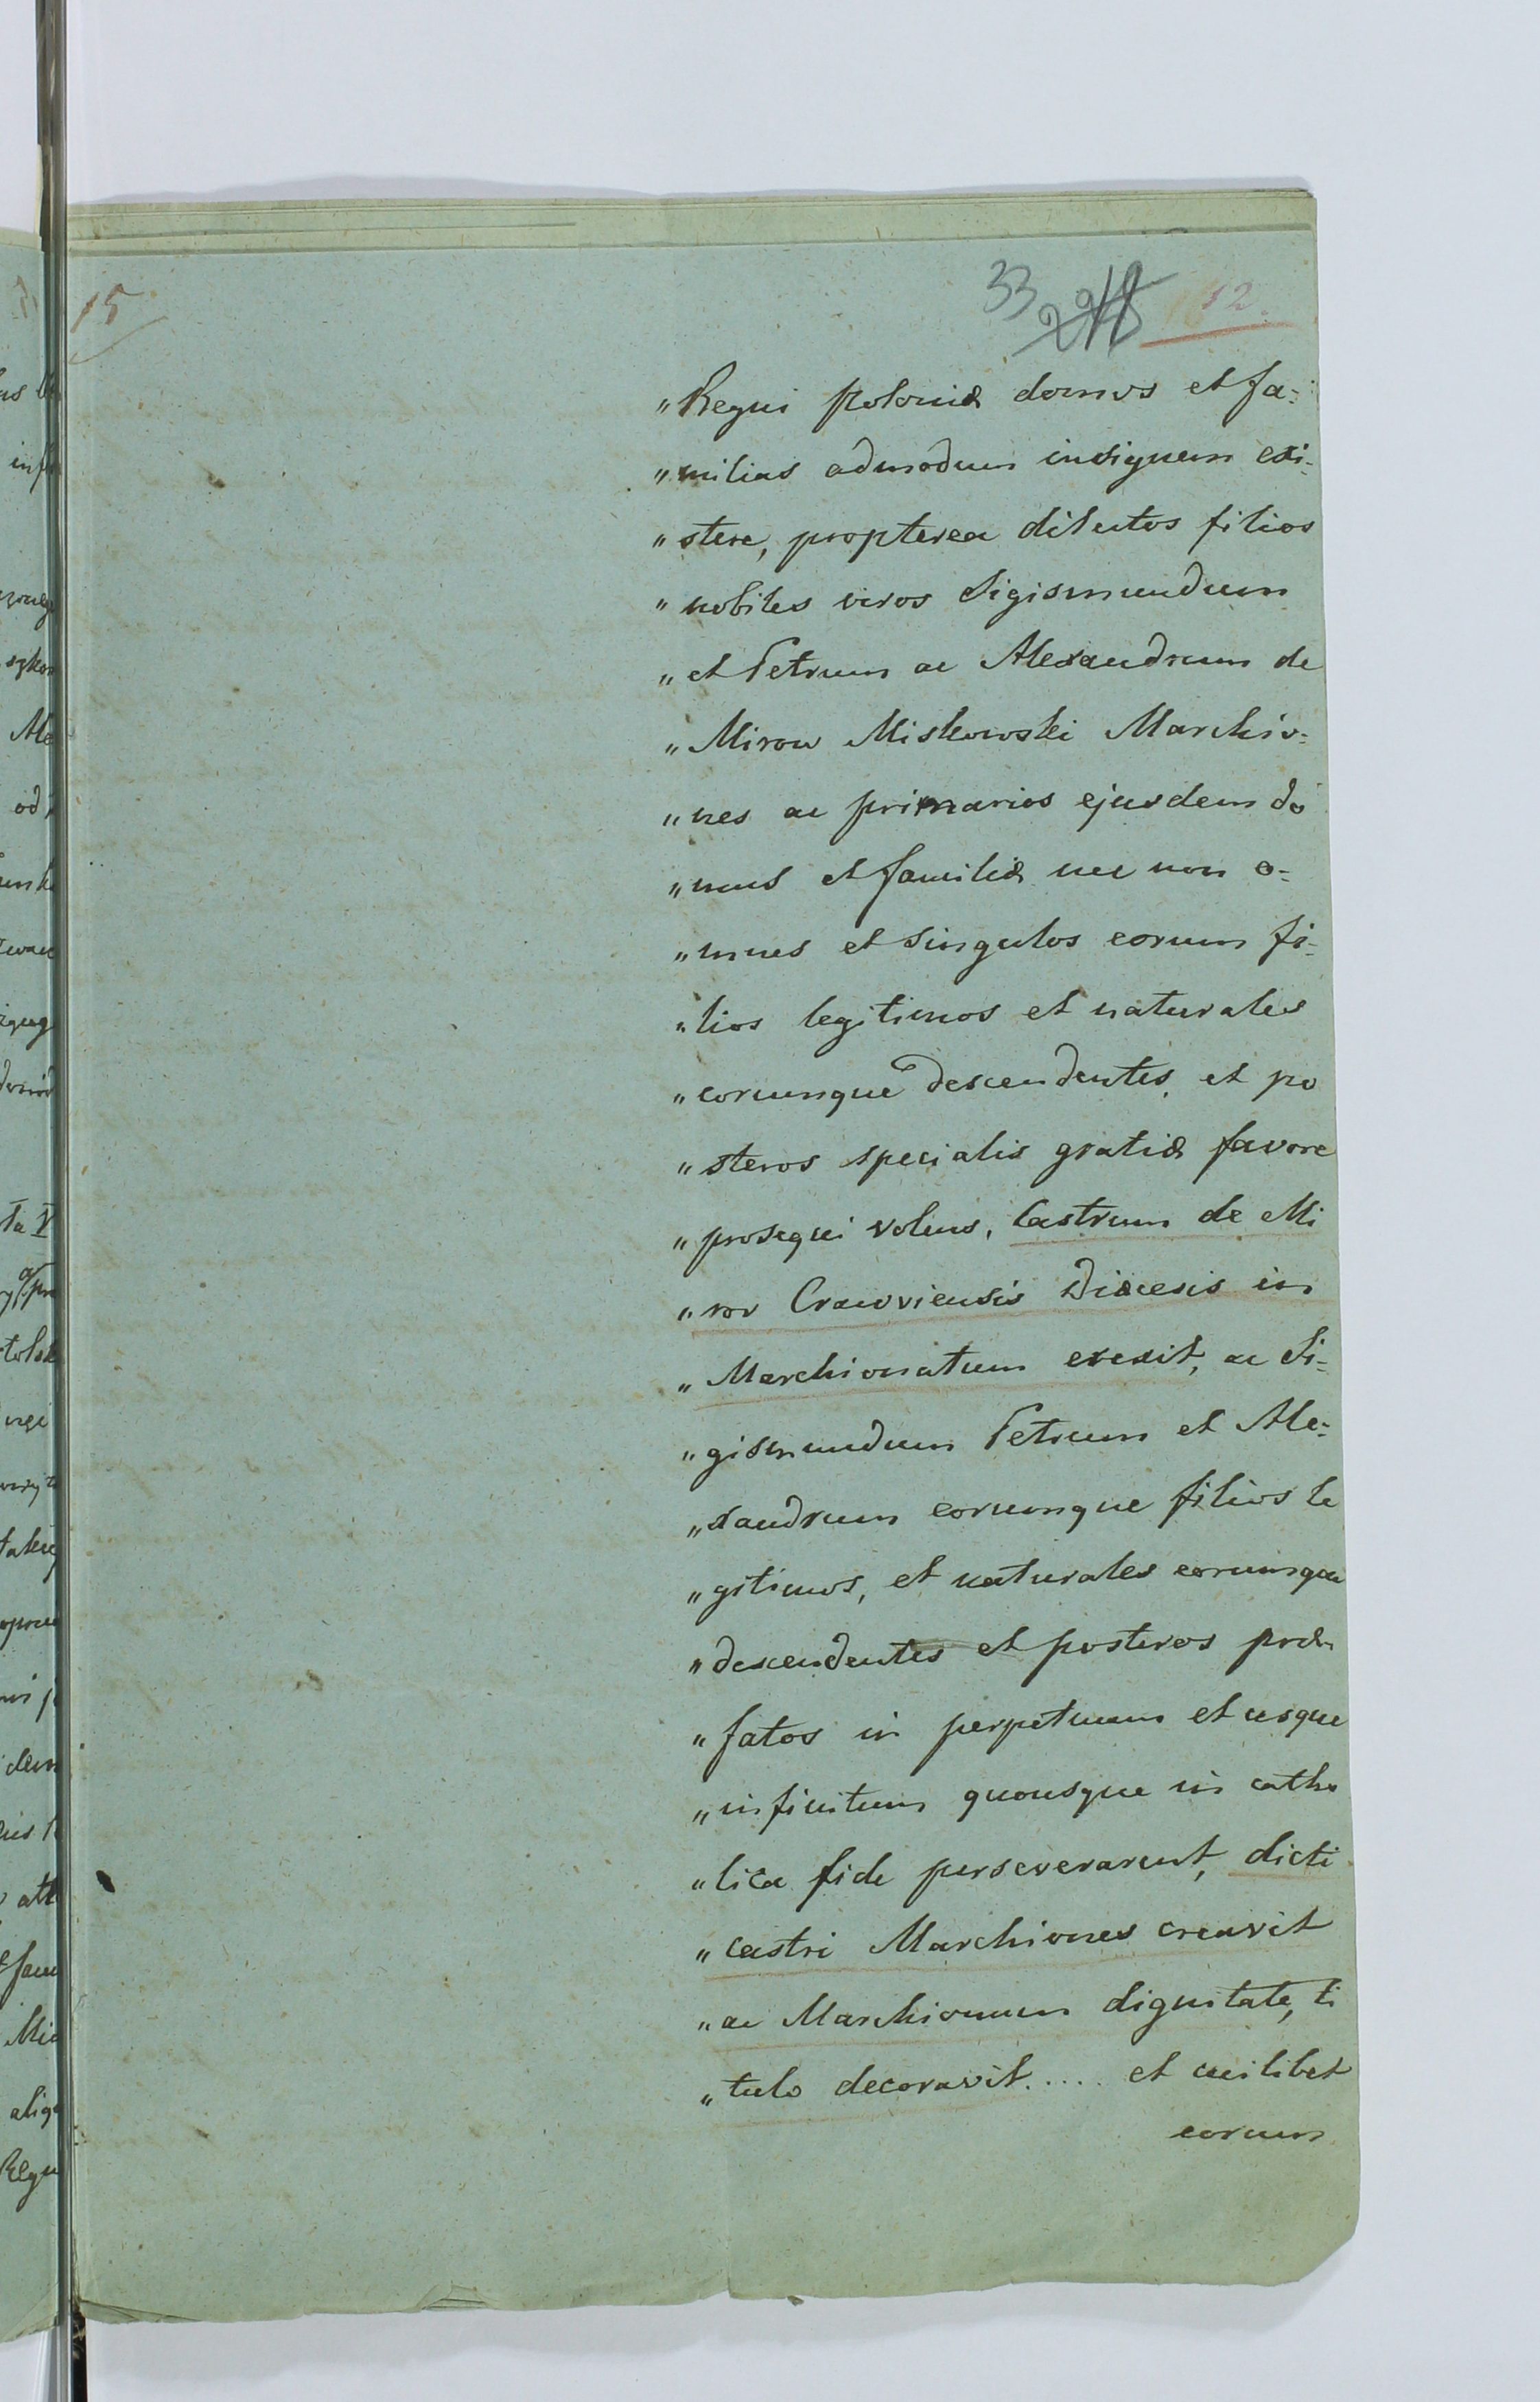 15
33 218 12.
„Regni Poloniæ domus et fa=
„milias admodum insignem exi=
„stere, propterea dilectos filios
„nobiles viros Sigismundum
„et Petrum ac Alexandrum de
„Mirow Miskowski Marchio=
„nes ac primarios ejusdem do
„mus et familiæ nec non o=
„mnes et singulos eorum fi=
„lios legitimos et naturales
„eorumque descendentes, et po
„steros specialis gratiæ favore
„prosequi volens, Castrum de Mi
„rov Cracoviensis Diæcesis in
„Marchionatum erexit, ac Si=
„gismundum Petrum et Ale=
„xandrum eorumque filios le
„gitimos, et naturales eorumque
„descendentes et posteros præ
„fatos in perpetuum et usque
„infinitum quousque in catho
„lica fide perseverarent, dicti
„castri Marchiones creavit
„ac Marchionum dignitate, ti
„tulo decoravit..... et cuilibet
eorum